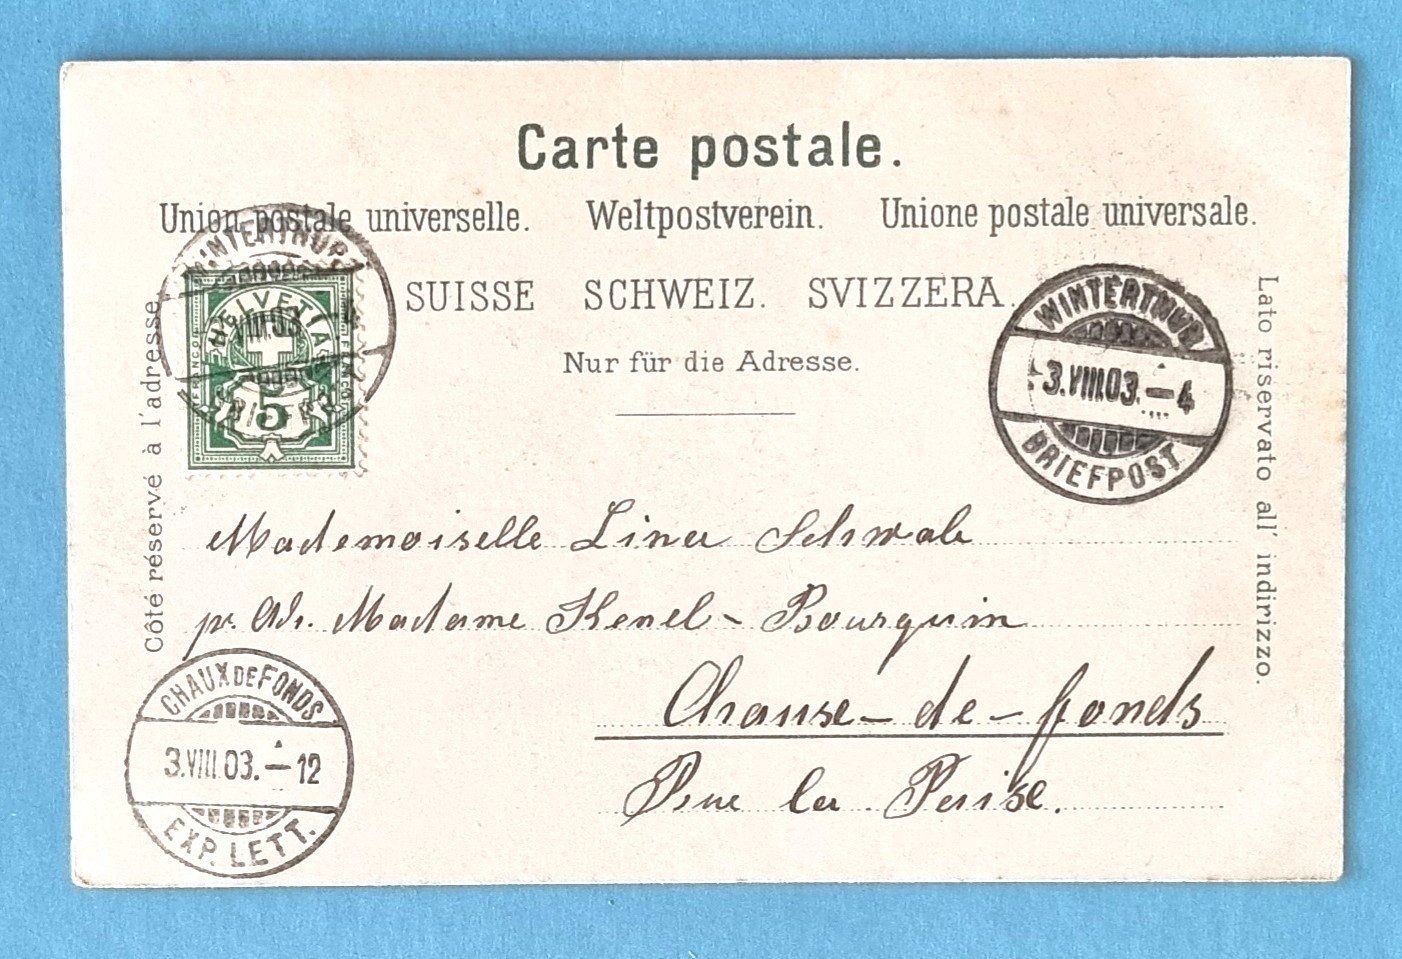 Carte postale.
Union postale universelle. Weltpostverein. Unione postale universale.
SUISSE SCHWEIZ. SVIZZERA.
Nur für die Adresse.
Côté réservé à l'adresse.
Lato riservato all' indirizzo.
WINTERTHUR
VIII.03.-4
BRIEFP
HELVETIA
FRANCO
FRANCO
5
WINTERTHUR
3.VIII.03.-4
BRIEFPOST
Mademoiselle Lina Schwab
pr. Ad. Madame Kenel-Bourquin
Chaux-de-fonds
Rue la
CHAUX DE FONDS
3.VIII.03.-12
EXP. LETT.